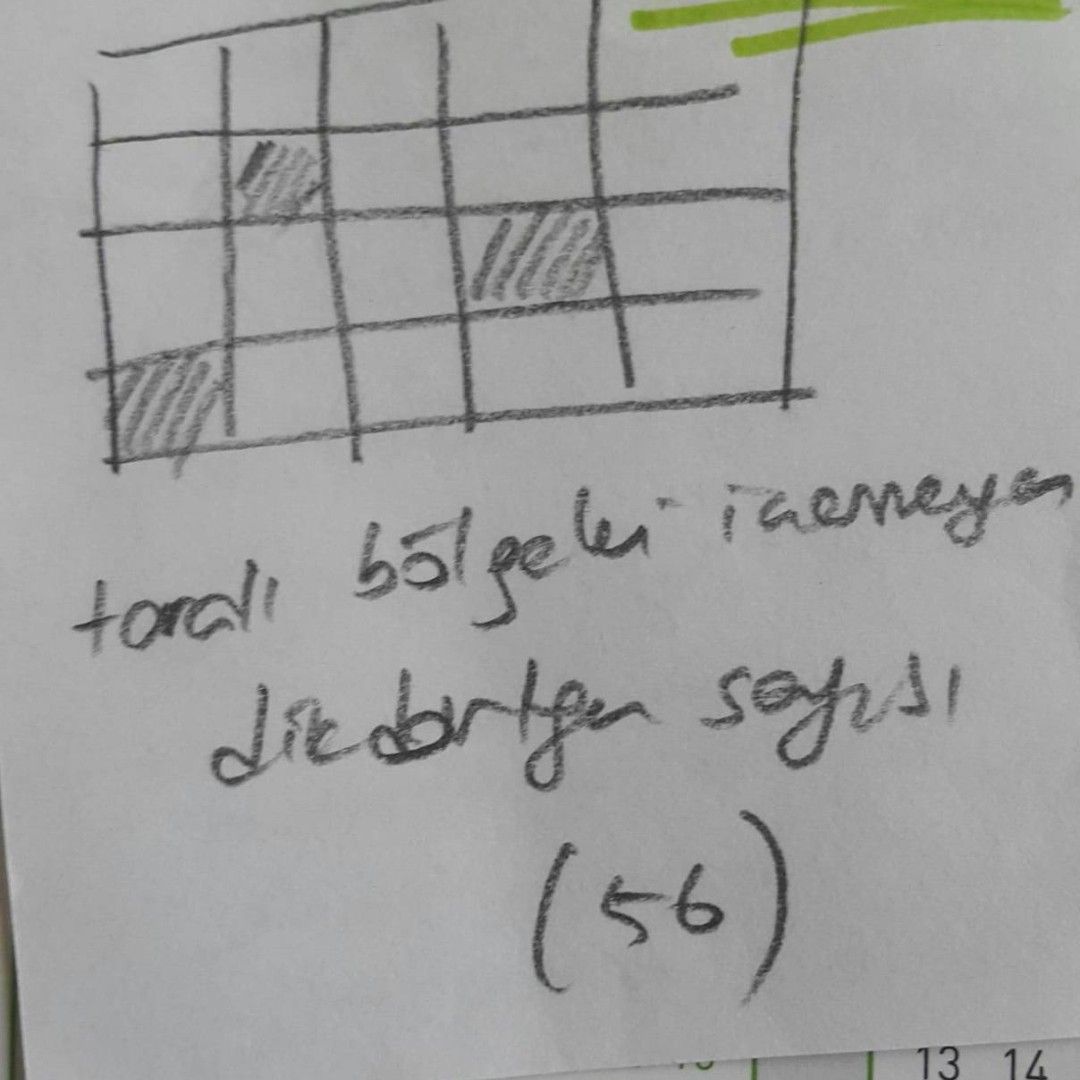 taralı bölgeleri içermeyen
dikdörtgen sayısı
(56)
13 14